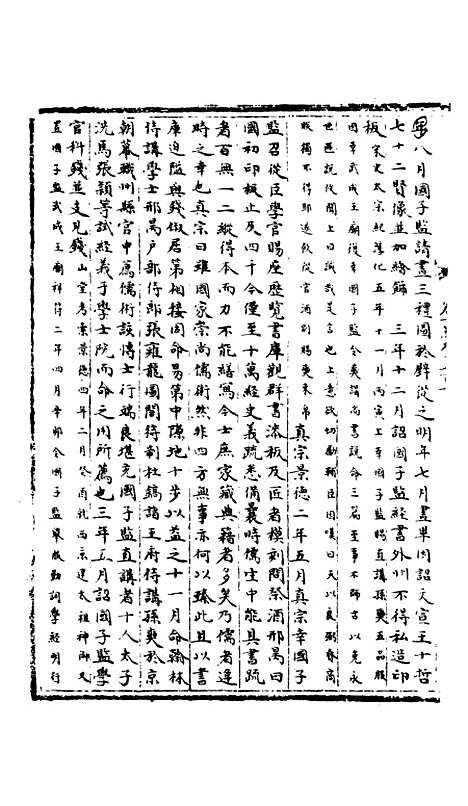 畢八月國子監請畫三禮圖於壁從之明年七月畫畢因詔文宣王十哲
七十二賢像並加繪飾　三年十二月詔國子監經書外州不得私造印
板宋史太宗紀淳化五年十一月丙寅上幸國子監賜直講孫奭五品服
因幸武成王廟復幸國子監令奭講尚書說命三篇至事不師古以克永
世匪說攸聞上曰誠哉是言也上意欲切勵輔臣因嘆曰天以良弼賚商
朕獨不得耶遂飲從官酒別賜奭束帛　真宗景德二年五月真宗幸國子
監召從臣學官賜座歷覽書庫觀群書漆板及匠者模刻問祭酒邢昺曰
國初印板止及四千今僅至十萬經史義疏悉備曩時儒生中能具書疏
者百無一二縱得本而力不能繕寫今士庶家藏典籍者多矣乃儒者逢
時之幸也真宗曰雖國家崇尚儒術然非四方無事亦何以臻此且以書
庫迫隘與錢俶居第相接因命易第中隙地十步以益之十一月命翰林
侍講學士邢昺戶部侍郎張雍龍圖閣待制杜鎬諸王府侍講孫奭於京
朝幕職州縣官中薦儒術該博士行端良堪充國子監直講者十人太子
洗馬張穎等試經義于學士院而命之因所薦也三年五月詔國子監學
官料錢並支見錢山堂考索景德四年二月癸酉就西京建太祖神御又
置國子監武成王廟祥符二年四月辛卯令國子監舉服勤詞學經明行